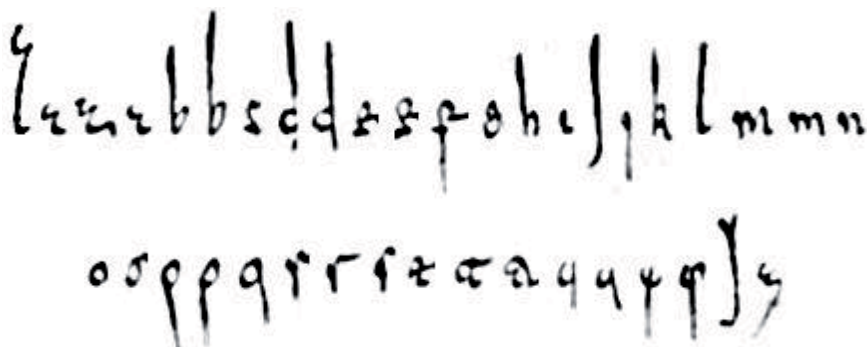 a a a a b b c d d e e f g h i i i k l m m n
o o p p q r r s t t t u u x x y z